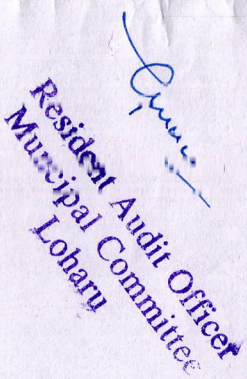 Resident Audit Officer
Muncipal Committee
Loharu